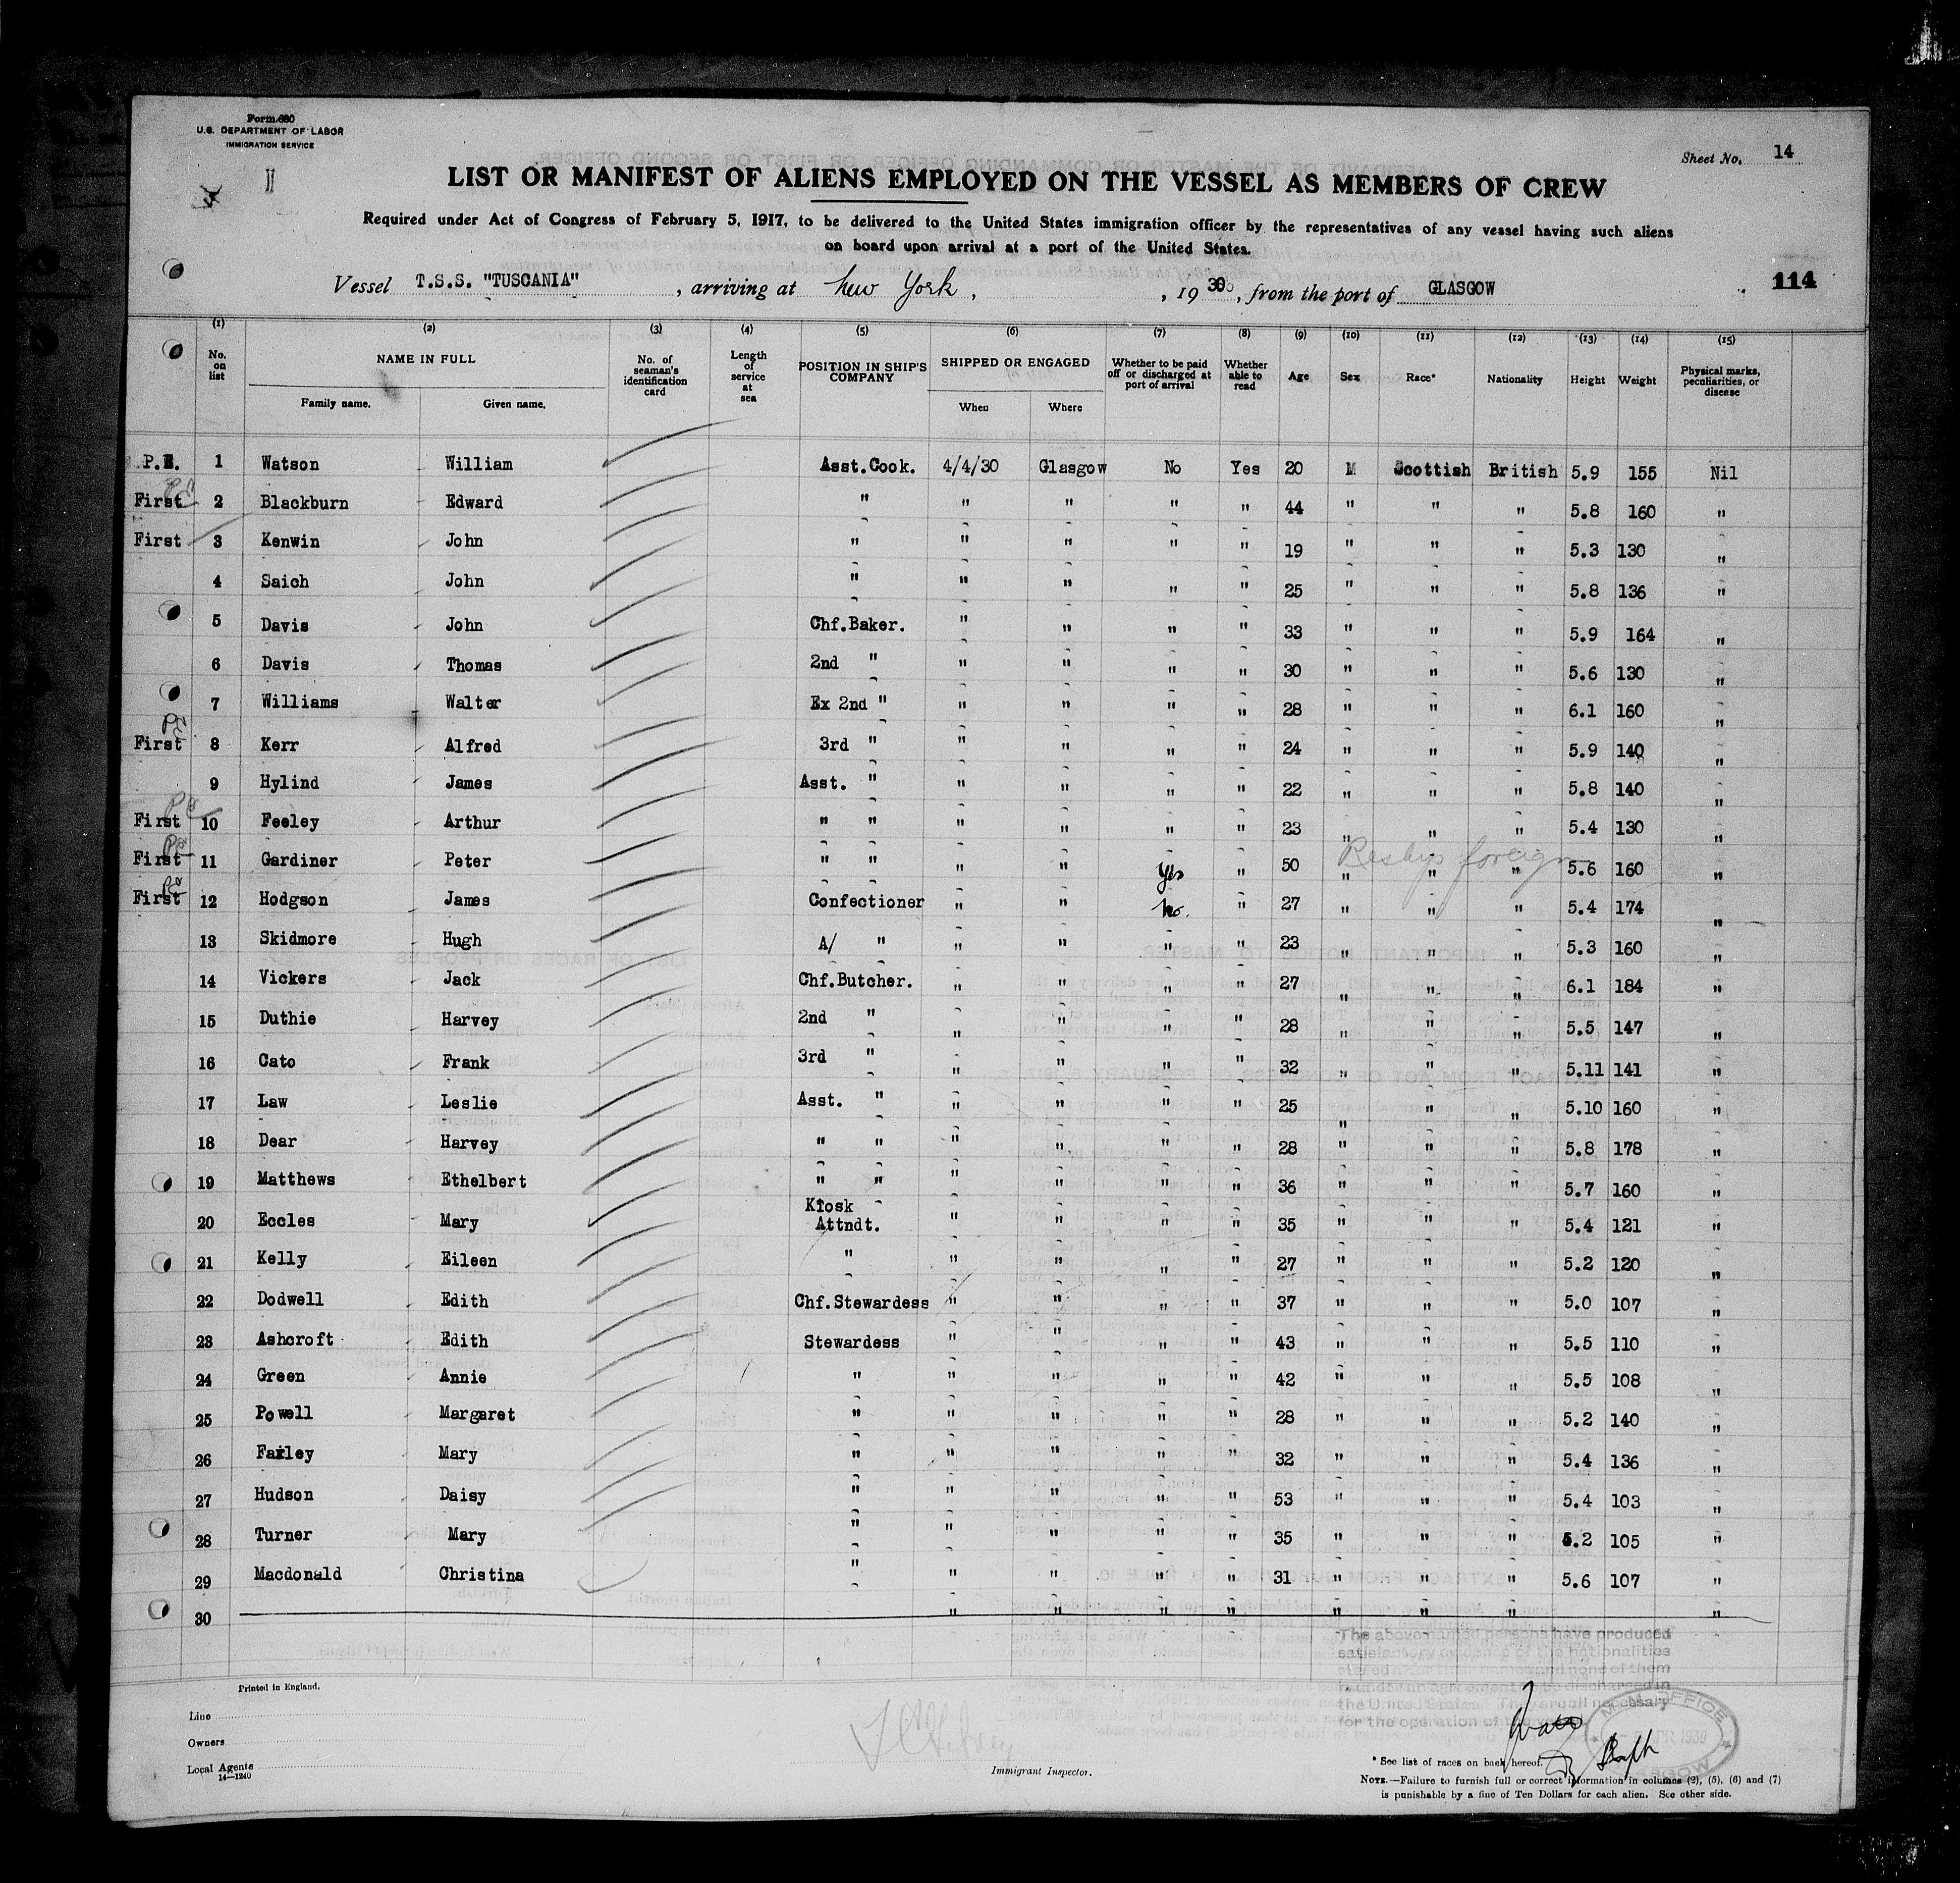 Form 680
U.S. DEPARTMENT OF LABOR
IMMIGRATION SERVICE
Sheet No. 14
LIST OR MANIFEST OF ALIENS EMPLOYED ON THE VESSEL AS MEMBERS OF CREW
Required under Act of Congress of February 5, 1917, to be delivered to the United States immigration officer by the representatives of any vessel having such aliens
on board upon arrival at a port of the United States.
Vessel T.S.S. "TUSCANIA", arriving at New York, , 1930, from the port of GLASGOW
114
(1) (2) (3) (4) (5) (6) (7) (8) (9) (10) (11) (12) (13) (14) (15)
No. on list NAME IN FULL Family name. Given name. No. of seaman's identification card Length of service at sea POSITION IN SHIP'S COMPANY SHIPPED OR ENGAGED When Where Whether to be paid off or discharged at port of arrival Whether able to read Age Sex Race* Nationality Height Weight Physical marks, peculiarities, or disease
1 Watson William Asst.Cook. 4/4/30 Glasgow No Yes 20 M Scottish British 5.9 155 Nil
First 2 Blackburn Edward " " " " " 44 " " " 5.8 160 "
First 3 Kenwin John " " " " " 19 " " " 5.3 130 "
4 Saich John " " " " " 25 " " " 5.8 136 "
5 Davis John Chf.Baker. " " " " 33 " " " 5.9 164 "
6 Davis Thomas 2nd " " " " " 30 " " " 5.6 130 "
7 Williams Walter Ex 2nd " " " " " 28 " " " 6.1 160 "
First 8 Kerr Alfred 3rd " " " " " 24 " " " 5.9 140 "
9 Hylind James Asst. " " " " " 22 " " " 5.8 140 "
First 10 Feeley Arthur " " " " " " 23 " " " 5.4 130 "
First 11 Gardiner Peter " " " " Yes " 50 " " " 5.6 160 "
foreign
First 12 Hodgson James Confectioner " " No. " 27 " " " 5.4 174 "
13 Skidmore Hugh A/ " " " " " 23 " " " 5.3 160 "
14 Vickers Jack Chf.Butcher. " " " " 27 " " " 6.1 184 "
15 Duthie Harvey 2nd " " " " " 28 " " " 5.5 147 "
16 Cato Frank 3rd " " " " " 32 " " " 5.11 141 "
17 Law Leslie Asst. " " " " " 25 " " " 5.10 160 "
18 Dear Harvey " " " " " " 28 " " " 5.8 178 "
19 Matthews Ethelbert " " " " " " 36 " " " 5.7 160 "
20 Eccles Mary Kiosk Attndt. " " " " 35 " " " 5.4 121 "
21 Kelly Eileen " " " " " 27 " " " 5.2 120 "
22 Dodwell Edith Chf.Stewardess " " " " 37 " " " 5.0 107 "
23 Ashcroft Edith Stewardess " " " " 43 " " " 5.5 110 "
24 Green Annie " " " " " 42 " " " 5.5 108 "
25 Powell Margaret " " " " " 28 " " " 5.2 140 "
26 Failey Mary " " " " " 32 " " " 5.4 136 "
27 Hudson Daisy " " " " " 53 " " " 5.4 103 "
28 Turner Mary " " " " " 35 " " " 5.2 105 "
29 Macdonald Christina " " " " " 31 " " " 5.6 107 "
30 " " " " " " " "
The above named persons have produced
satisfactory evidence of the nationalities
and none of them
to be discharged in
the United States. They are all necessary
for the operation of the vessel.
Printed in England.
Line
Owners
Local Agents
14—1240
Immigrant Inspector.
OFFICE
APR 1930
* See list of races on back hereof.
NOTE.—Failure to furnish full or correct information in columns (2), (5), (6) and (7)
is punishable by a fine of Ten Dollars for each alien. See other side.